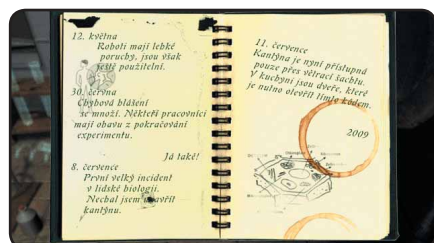 12. května
Roboti mají lehké
poruchy, jsou však
ještě použitelní.
30. června
Chybová hlášení
se množí. Někteří pracovníci
mají obavu z pokračování
experimentu.
Já také!
8. července
První velký incident
v lidské biologii.
Nechal jsem uzavřít
kantýnu.
11. července
Kantýna je nyní přístupná
pouze přes větrací šachtu.
V kuchyni jsou dveře, které
je nutno otevřít tímto kódem.
2009